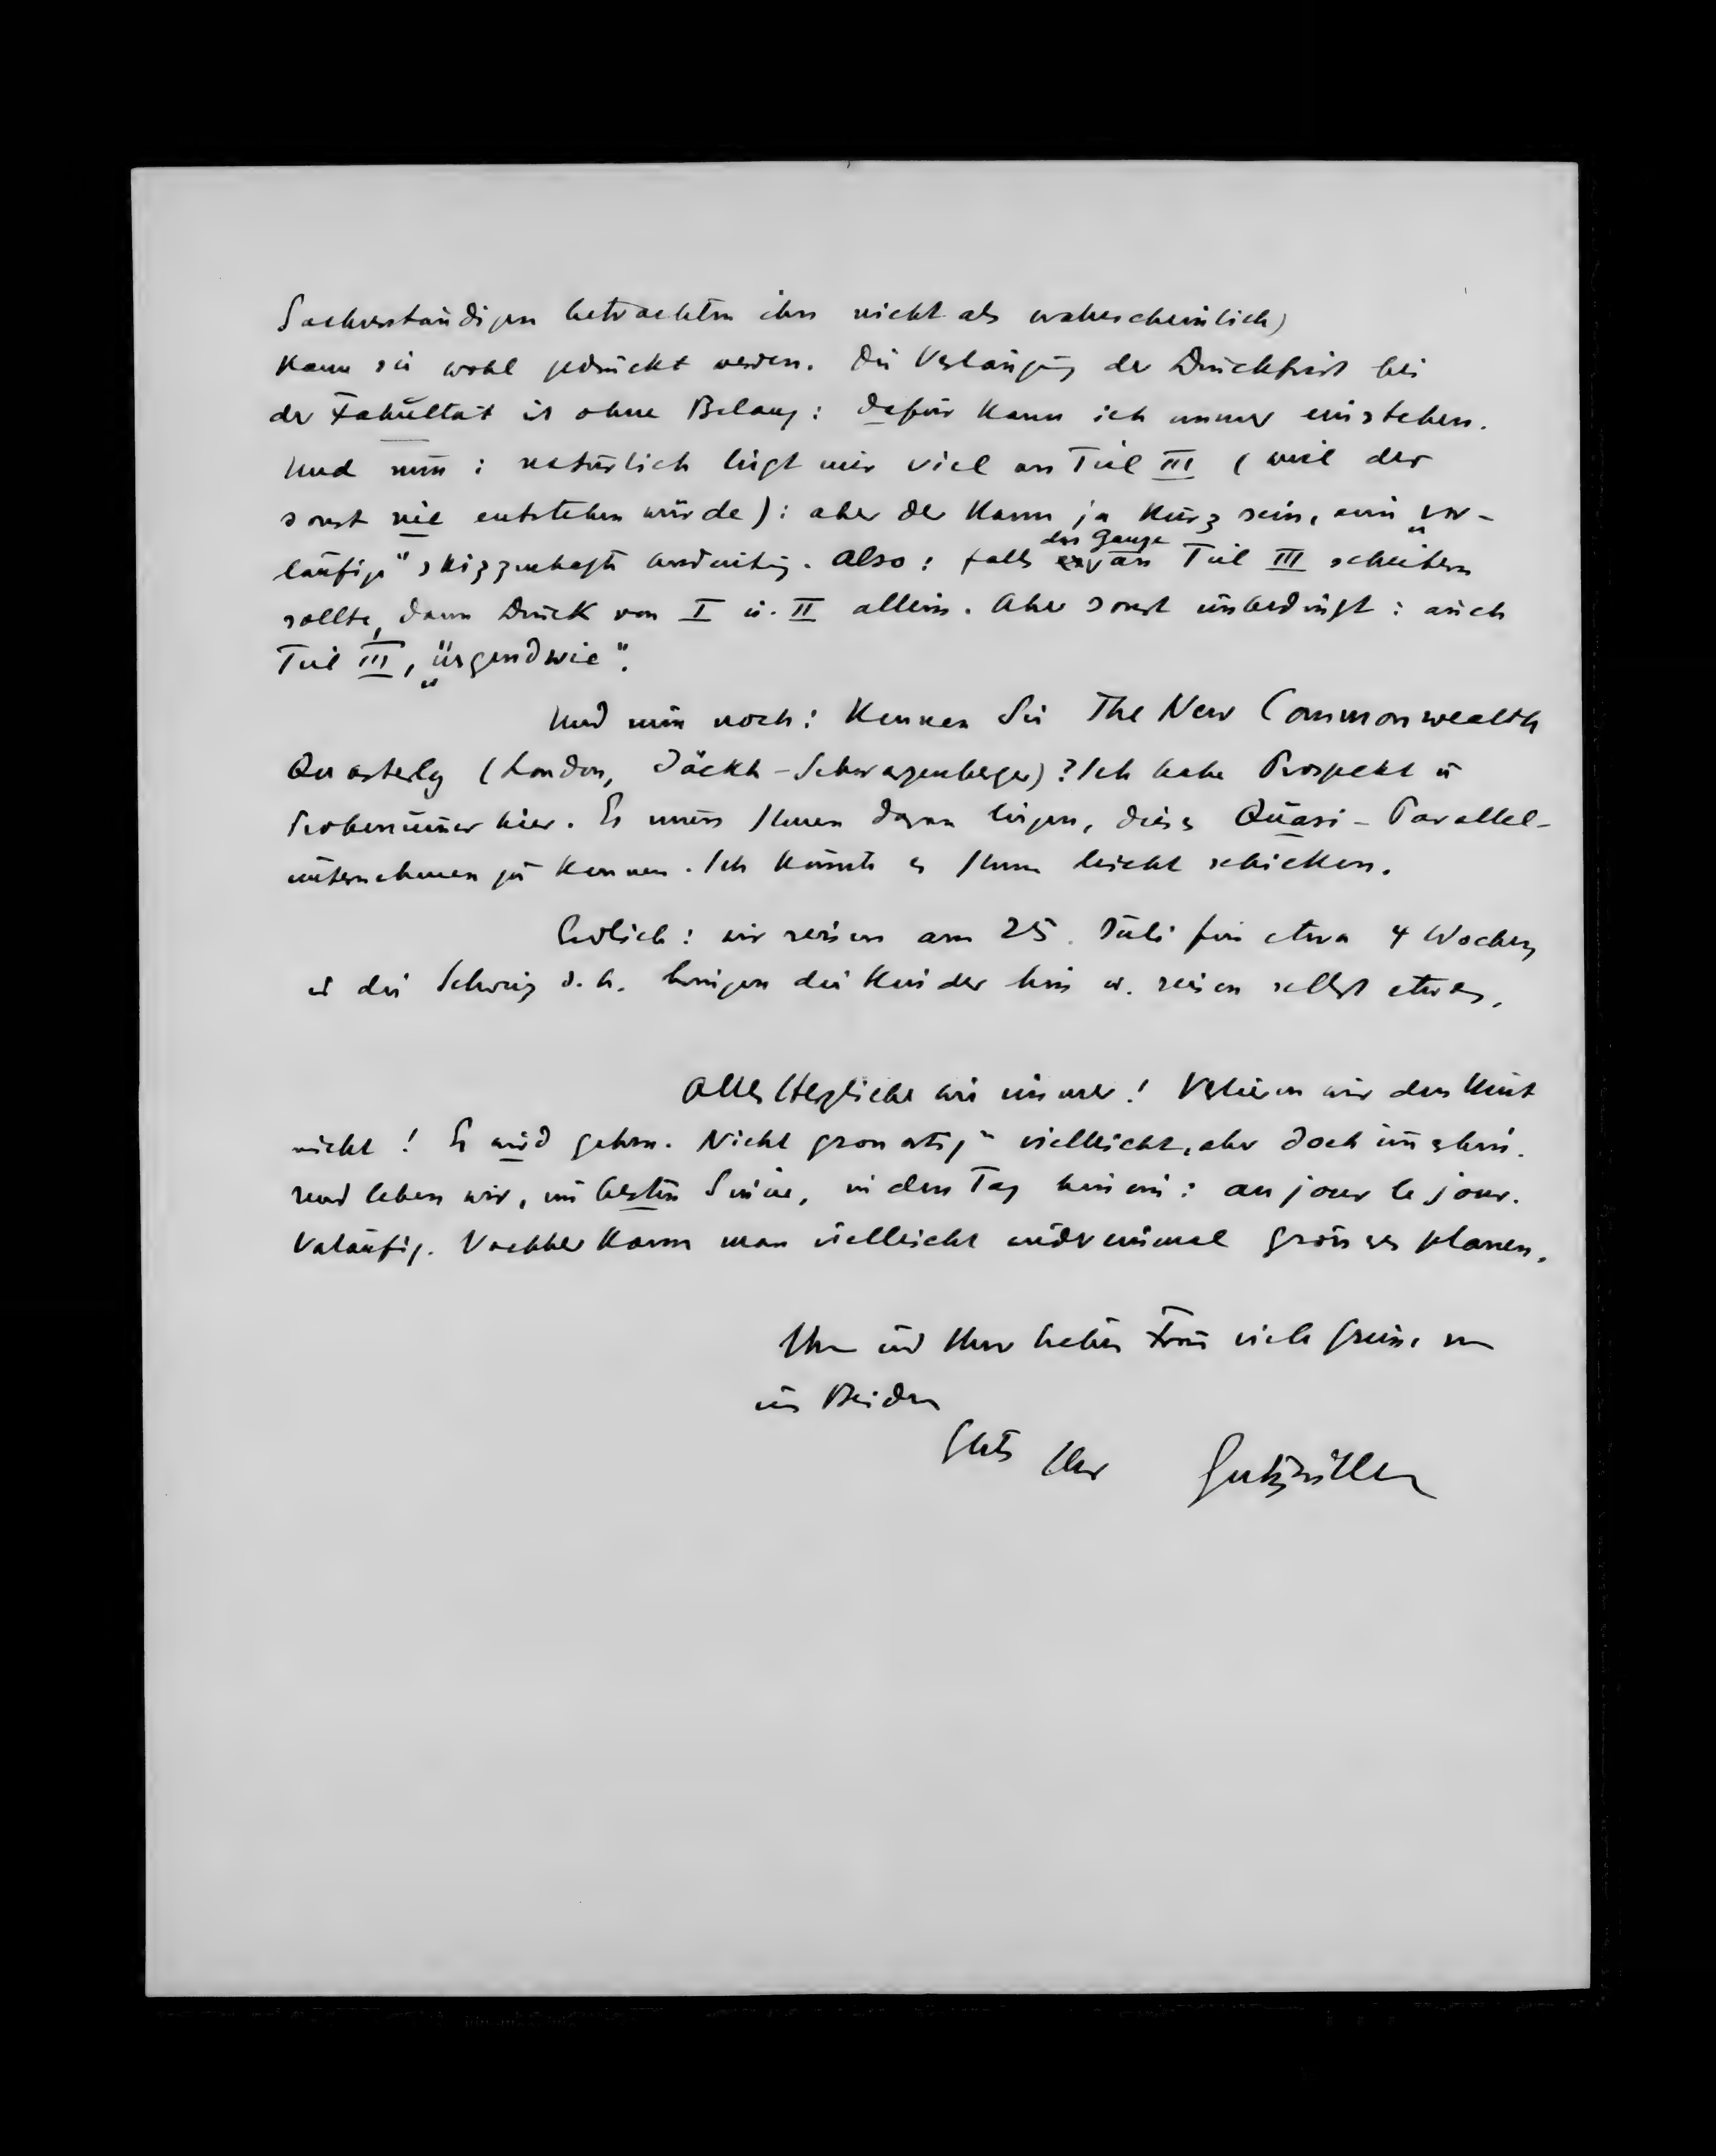 Sachverständigen betrachten ihn nicht als wahrscheinlich)
kann sie wohl gedruckt werden. Die Verlängerung der Druckfrist bei
der Fakultät ist ohne Belang: dafür kann ich immer einstehen.
Und nun: natürlich liegt mir viel an Teil III (weil der
sonst nie entstehen würde): aber der kann ja kurz sein, eine „vor-
das Ganze
läufige" skizzenhafte Andeutung. Also: falls an Teil III scheitern
sollte, dann Druck von I u. II allein. Aber sonst unbedingt: auch
Teil III, „irgendwie".
Und nun noch: Kennen Sie The New Commonwealth
Quarterly (London, Jäckh-Schwarzenberger)? Ich habe Prospekt u
Probenummer hier. Es muss Ihnen daran liegen, dieses Quasi-Parallel-
unternehmen zu kennen. Ich könnte es Ihnen leicht schicken.
Endlich: wir reisen am 25. Juli für etwa 4 Wochen
in die Schweiz d.h. bringen die Kinder hin u. reisen selbst etwas.
Alles Herzliche wie immer! Verlieren wir den Mut
nicht! Es wird gehen. Nicht grossartig vielleicht, aber doch immerhin.
Und leben wir, im besten Sinne, in den Tag hinein: au jour le jour.
Vorläufig. Nachher kann man vielleicht wieder einmal grösseres planen.
Ihnen und Ihrer lieben Frau viele Grüsse von
uns Beiden
Stets Ihr Gutzwiller